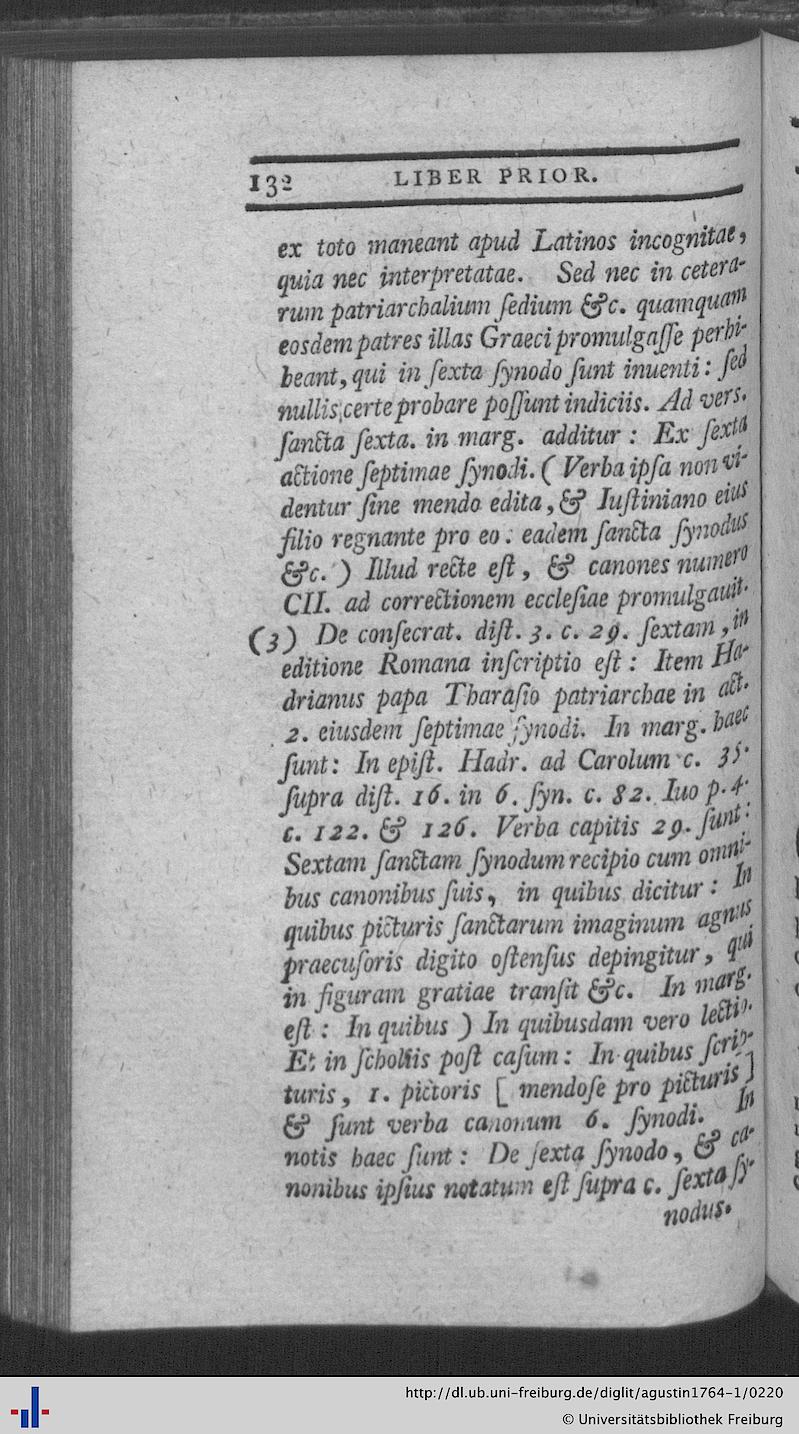 132 LIBER PRIOR.
ex toto maneant apud Latinos incognitae,
quia nec interpretatae. Sed nec in cetera-
rum patriarchalium ſedium &c. quamquam
eosdem patres illas Graeci promulgaſſe perhi-
beant, qui in ſexta ſynodo ſunt inuenti: ſed
nullis certe probare poſſunt indiciis. Ad vers.
ſancta ſexta. in marg. additur: Ex ſexta
actione ſeptimae ſynodi. (Verba ipſa non vi-
dentur ſine mendo edita, & Iuſtiniano eius
filio regnante pro eo: eadem ſancta ſynodus
&c.) Illud recte eſt, & canones numero
CII. ad correctionem eccleſiae promulgauit.
(3) De conſecrat. diſt. 3. c. 29. ſextam, in
editione Romana inſcriptio eſt: Item Ha-
drianus papa Tharaſio patriarchae in act.
2. eiusdem ſeptimae ſynodi. In marg. haec
ſunt: In epiſt. Hadr. ad Carolum c. 35.
ſupra diſt. 16. in 6. ſyn. c. 82. Iuo p. 4.
c. 122. & 126. Verba capitis 29. ſunt:
Sextam ſanctam ſynodum recipio cum omni-
bus canonibus ſuis, in quibus dicitur: In
quibus picturis ſanctarum imaginum agnus
praecuſoris digito oſtenſus depingitur, qui
in figuram gratiae tranſit &c. In marg.
eſt: In quibus) In quibusdam vero lectio.
Et in ſcholiis poſt caſum: In quibus ſcrip-
turis, 1. pictoris [mendoſe pro picturis]
& ſunt verba canonum 6. ſynodi. In
notis haec ſunt: De ſexta ſynodo, & ca-
nonibus ipſius notatum eſt ſupra c. ſexta ſy-
nodus.
http://dl.ub.uni-freiburg.de/diglit/agustin1764-1/0220
© Universitätsbibliothek Freiburg